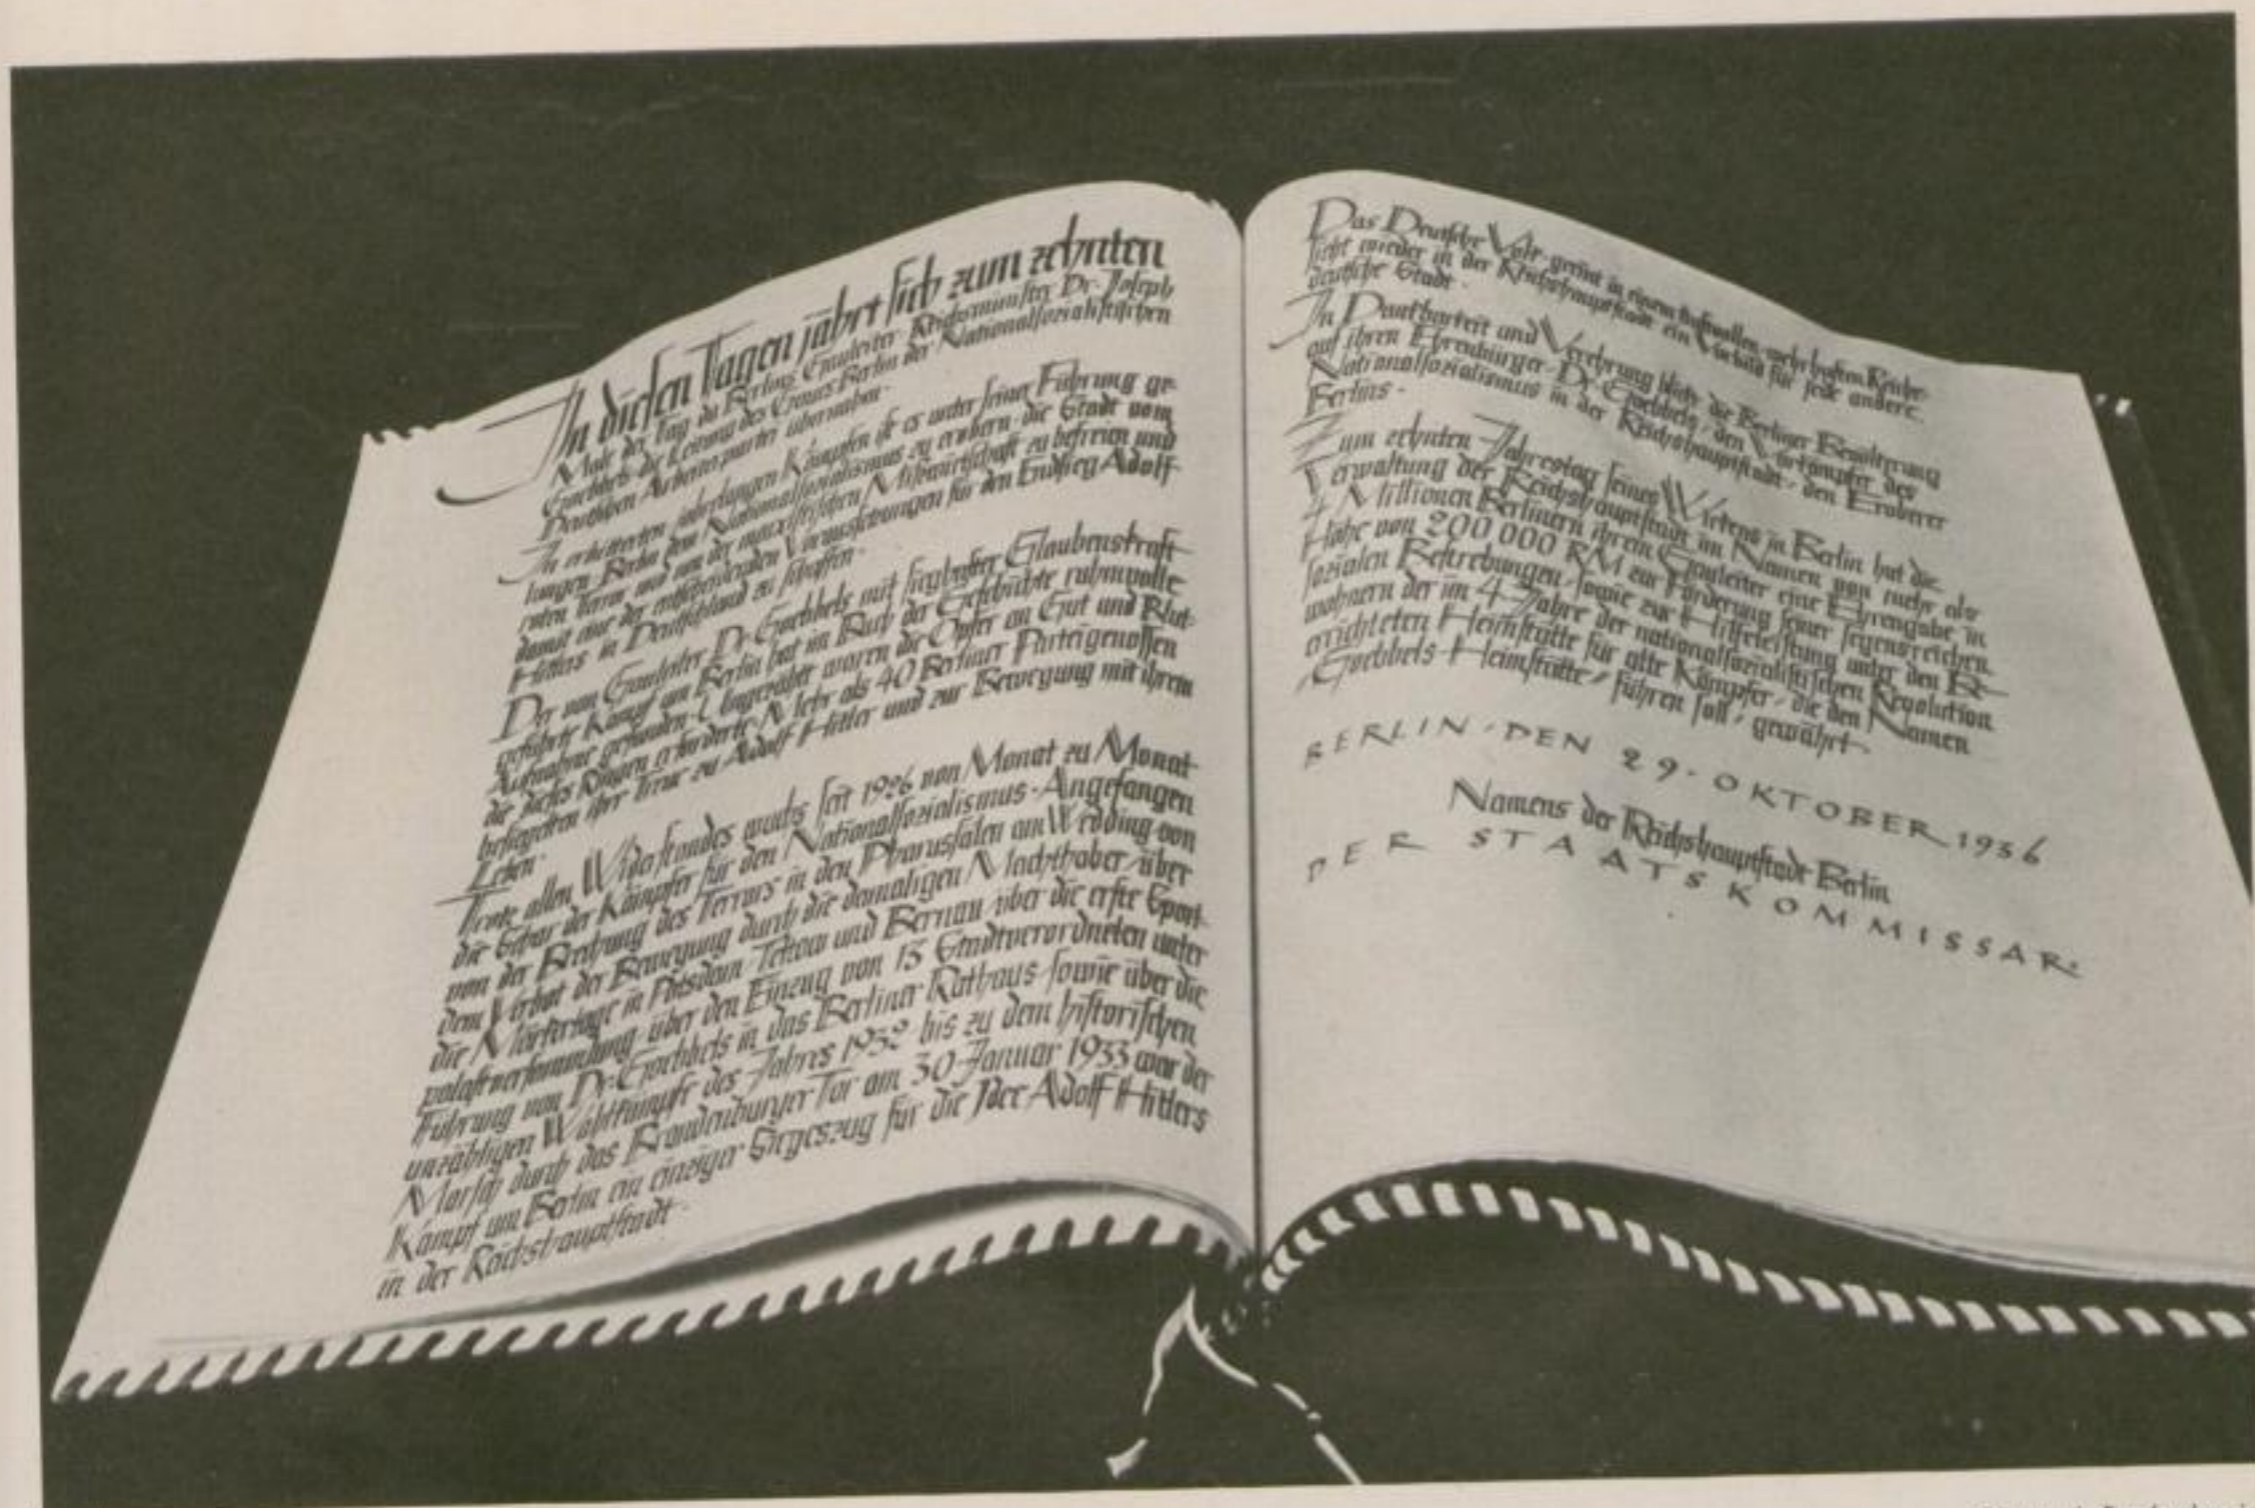 In diesen Tagen jährt sich zum zehnten
Male der Tag, da Berlins Gauleiter Reichsminister Dr. Joseph
Goebbels die Leitung des Gaues Berlin der Nationalsozialistischen
Deutschen Arbeiterpartei übernahm.
In erbitterten, jahrelangen Kämpfen ist es unter seiner Führung ge-
lungen, Berlin dem Nationalsozialismus zu erobern, die Stadt vom
roten Terror und von der marxistischen Mißwirtschaft zu befreien und
damit eine der entscheidenden Voraussetzungen für den Endsieg Adolf
Hitlers in Deutschland zu schaffen.
Der vom Gauleiter Dr. Goebbels mit sieghafter Glaubenskraft
geführte Kampf um Berlin hat im Buch der Geschichte ruhmvolle
Aufnahme gefunden. Ungezählt waren die Opfer an Gut und Blut,
die dieses Ringen erforderte. Mehr als 40 Berliner Parteigenossen
besiegelten ihre Treue zu Adolf Hitler und zur Bewegung mit ihrem
Leben.
Trotz allen Widerstandes wuchs seit 1926 von Monat zu Monat
die Schar der Kämpfer für den Nationalsozialismus. Angefangen
von der Brechung des Terrors in den Pharussälen am Wedding, von
dem Verbot der Bewegung durch die damaligen Machthaber, über
die Märkertage in Potsdam, Teltow und Bernau, über die erste Sport-
palastversammlung, über den Einzug von 13 Stadtverordneten unter
Führung von Dr. Goebbels in das Berliner Rathaus, sowie über die
unzähligen Wahlkämpfe des Jahres 1932 bis zu dem historischen
Marsch durch das Brandenburger Tor am 30. Januar 1933 war der
Kampf um Berlin ein einziger Siegeszug für die Idee Adolf Hitlers
in der Reichshauptstadt.
Das Deutsche Volk, geeint in einem kraftvollen, wehrhaften Reiche,
sieht wieder in der Reichshauptstadt ein Vorbild für jede andere
deutsche Stadt.
In Dankbarkeit und Verehrung blickt die Berliner Bevölkerung
auf ihren Ehrenbürger, Dr. Goebbels, den Vorkämpfer des
Nationalsozialismus in der Reichshauptstadt, den Eroberer
Berlins.
Zum zehnten Jahrestag seines Wirkens in Berlin hat die
Verwaltung der Reichshauptstadt im Namen von mehr als
4 Millionen Berlinern ihrem Gauleiter eine Ehrengabe in
Höhe von 200 000 RM zur Förderung seiner segensreichen
sozialen Bestrebungen, sowie zur Hilfeleistung unter den Be-
wohnern der im 4. Jahre der nationalsozialistischen Revolution
errichteten Heimstätte für alte Kämpfer, die den Namen
„Goebbels-Heimstätte“ führen soll, gewährt.
BERLIN, DEN 29. OKTOBER 1936
Namens der Reichshauptstadt Berlin
DER STAATSKOMMISSAR: